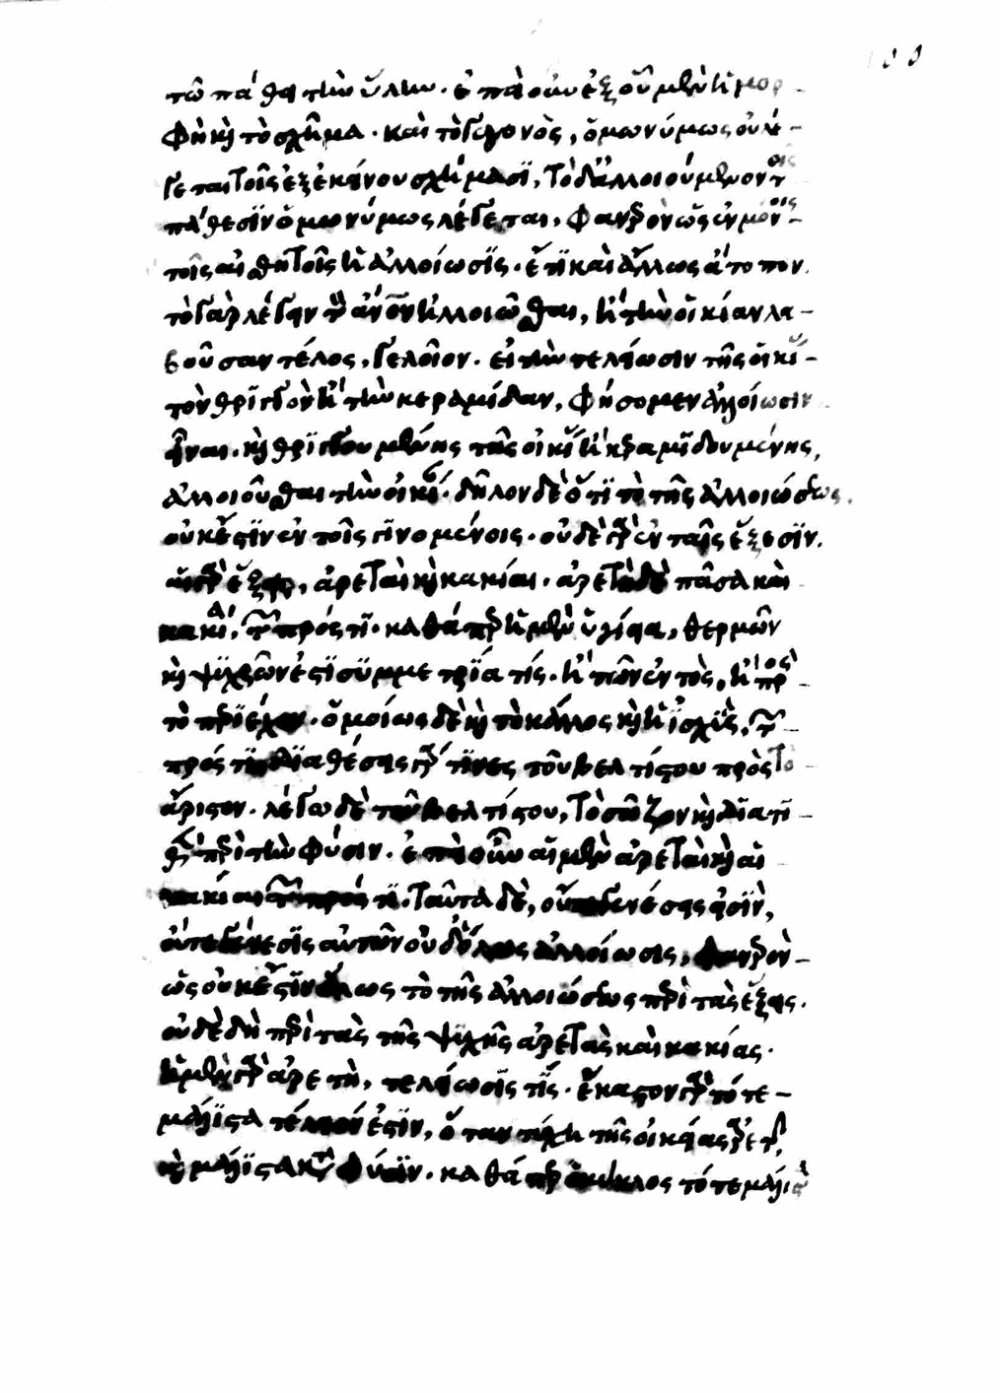 τῶ πάθει τὴν ὕλην. ἐπεὶ οὖν ἐξ οὗ μὲν ἡ μορ-
φὴ καὶ τὸ σχῆμα. καὶ τὸ γεγονὸς, ὁμωνύμως οὐ λέ-
γεται τοῖς ἐξ ἐκείνου σχήμασϊ, τὸ δ' ἀλλοιούμενον τοῖς
πάθεσϊν ὁμωνύμως λέγεται, φανερὸν ὡς ἐν μόνοις
τοῖς αἰσθητοῖς ἡ ἀλλοίωσϊς. ἔτϊ καὶ ἄλλως ἄτοπον.
τὸ γὰρ λέγειν τὸν ἄνον ἠλλοιῶσθαι, ἢ τὴν οἰκίαν λα-
βοῦσαν τέλος, γελοῖον. εἰ τὴν τελείωσιν τῆς οἰκί-
τὸν θριγκὸν ἢ τὴν κεραμίδαν, φήσομεν ἀλλοίωσιν
εἶναι. καὶ θριγκουμένης τῆς οἰκί ἢ κεραμιδουμένης,
ἀλλοιοῦσθαι τὴν οἰκί. δῆλον δὲ ὅτϊ τὸ τῆς ἀλλοιώσεως,
οὐκ ἔστϊν ἐν τοῖς γινομένοις. οὐδὲ γὰρ ἐν ταῖς ἕξεσϊν.
αἱ γὰρ ἕξεις, ἀρεταὶ καὶ κακίαι. ἀρετὴ δὲ πᾶσα καὶ
κακία, τῶν πρός τι. καθάπερ ἡ μὲν ὑγίεια, θερμῶν
καὶ ψϊχρῶν ἐστϊ σϋμμετρϊα τίς. ἢ τῶν ἐντὸς, ἢ πρὸς
τὸ πρϊέχον. ὁμοίως δὲ καὶ τὸ κάλλος καὶ ἡ ἰσχϊς, τῶν
πρός τϊ. δϊαθέσεις γάρ τϊνες τοῦ βελτίστου πρὸς τὸ
ἄριστον. λέγω δὲ τοῦ βελτίστου, τὸ σῶζον καὶ δϊατϊ-
θὲν πρὶ τὴν φύσιν. ἐπεὶ οὖν αἱ μὲν ἀρεταὶ καὶ αἱ
κακίαι τῶν πρός τϊ. ταῦτα δὲ, οὔτε γενέσεις εἰσϊν,
οὔτε γένεσϊς αὐτῶν οὐδ' ὅλως ἀλλοίωσις, φανερὸν-
ὡς οὐκ ἔστϊν ὅλως τὸ τῆς ἀλλοιώσεως πρὶ τὰς ἕξεις.
οὐδὲ δὴ πρὶ τὰς τῆς ψϊχῆς ἀρετὰς καὶ κακίας.
ἡ μὲν γὰρ ἀρετὴ, τελείωσϊς τϊς. ἕκαστον γὰρ τότε-
μάλϊστα τέλειόν ἐστϊν, ὅταν τύχη τῆς οἰκείας ἀρετ,
καὶ μάλϊστα κτ φύσϊν. καθάπερ ὁ κύκλος τότε μάλισ